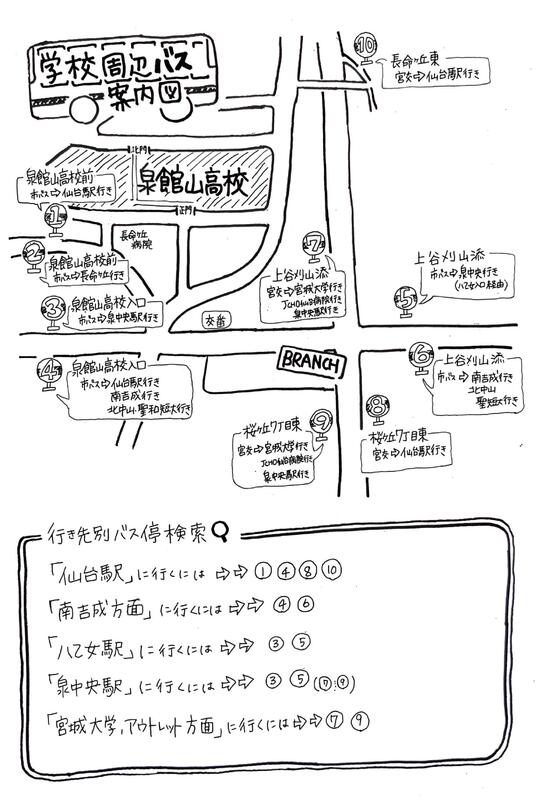 学校周辺バス
案内図
⑩
長命ヶ丘東
宮交⇨仙台駅行き
北門
泉館山高校
正門
泉館山高校前
市バス⇨仙台駅行き
①
長命ヶ丘
病院
②
泉館山高校前
市バス⇨長命ヶ丘行き
⑦
上谷刈山添
宮交⇨宮城大学行き
JCHO仙台病院行き
泉中央駅行き
上谷刈山添
市バス⇨泉中央行き
(八乙女入口経由)
⑤
③
泉館山高校入口
市バス⇨泉中央駅行き
交番
④
泉館山高校入口
市バス⇨仙台駅行き
南吉成行き
北中山・聖和短大行き
BRANCH
⑥
上谷刈山添
市バス⇨南吉成行き
北中山
聖短大行き
⑧
桜ヶ丘7丁目東
宮交⇨仙台駅行き
⑨
桜ヶ丘7丁目東
宮交⇨宮城大学行き
JCHO仙台病院行き
泉中央駅行き
行き先別バス停検索
「仙台駅」に行くには⇨⇨ ① ④ ⑧ ⑩
「南吉成方面」に行くには⇨⇨ ④ ⑥
「八乙女駅」に行くには⇨⇨ ③ ⑤
「泉中央駅」に行くには⇨⇨ ③ ⑤(⑦・⑨)
「宮城大学,アウトレット方面」に行くには⇨⇨⑦ ⑨